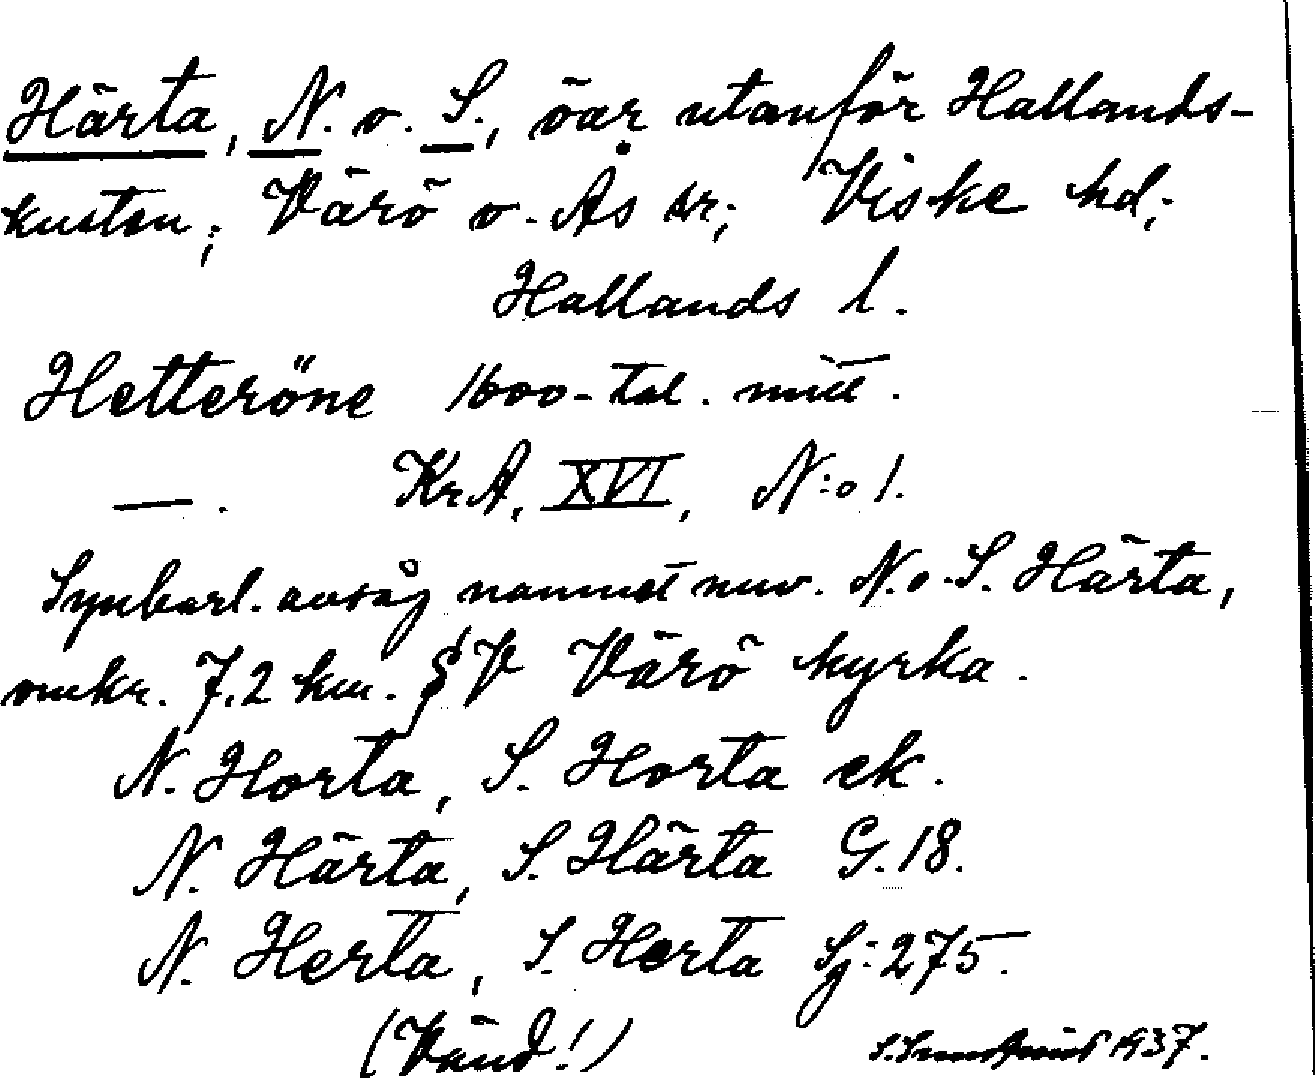 Härta, N. o. S., öar utanför Hallands-
kusten; Värö o. Ås sr; Viske hd;
Hallands l.
Hetteröne 1600-tal. mitt.
—. Kr.A. XVI, N:o 1.
Synbarl. avsåg namnet nuv. N. o. S. Härta,
omkr. 7.2 km. V Värö kyrka.
N. Horta, S. Horta ek.
N. Härta, S. Härta G. 18.
N. Herta, S. Herta Sj: 275.
(Vänd!) 1937.